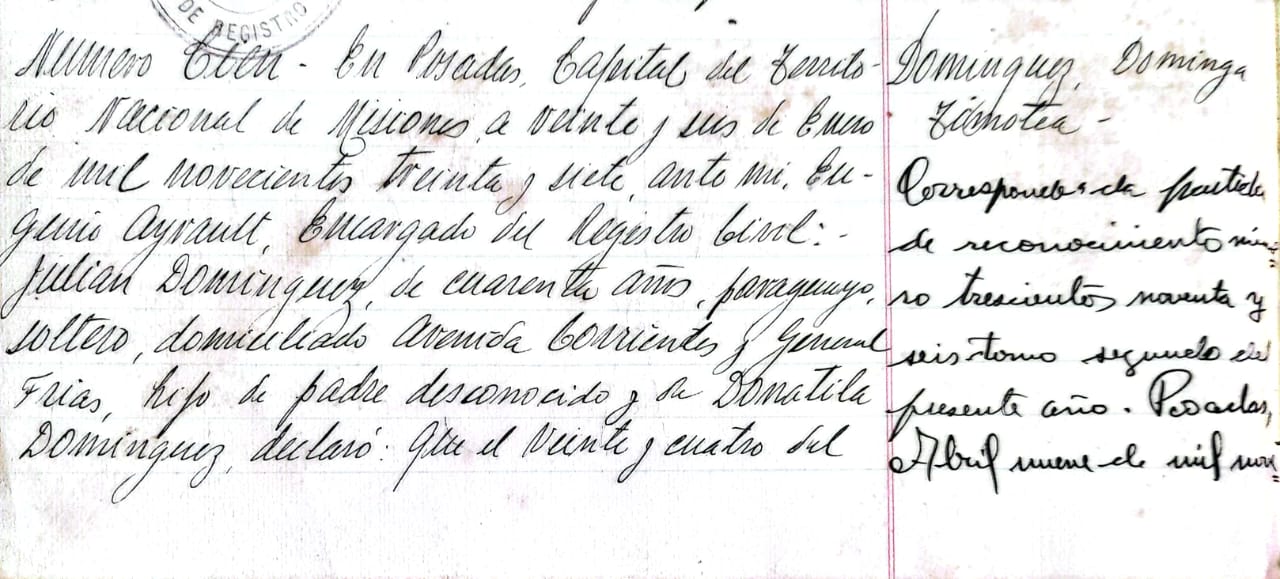 DE REGISTRO
Numero Cien - En Posadas, Capital del Territo-
rio Nacional de Misiones, a veinte y seis de Enero
de mil novecientos treinta y siete, ante mi, Eu-
genio Ayrault, Encargado del Registro Civil:-
Julian Dominguez, de cuarenta años, paraguayo,
soltero, domiciliado Avenida Corrientes y General
Frias, hijo de padre desconocido y de Donatila
Dominguez, declaró: Que el veinte y cuatro del
Dominguez, Dominga
Timotea -
Corresponde a la partida
de reconocimiento núme=
ro trescientos noventa y
seis-tomo segundo del
presente año. Posadas,
Abril nueve de mil nove=